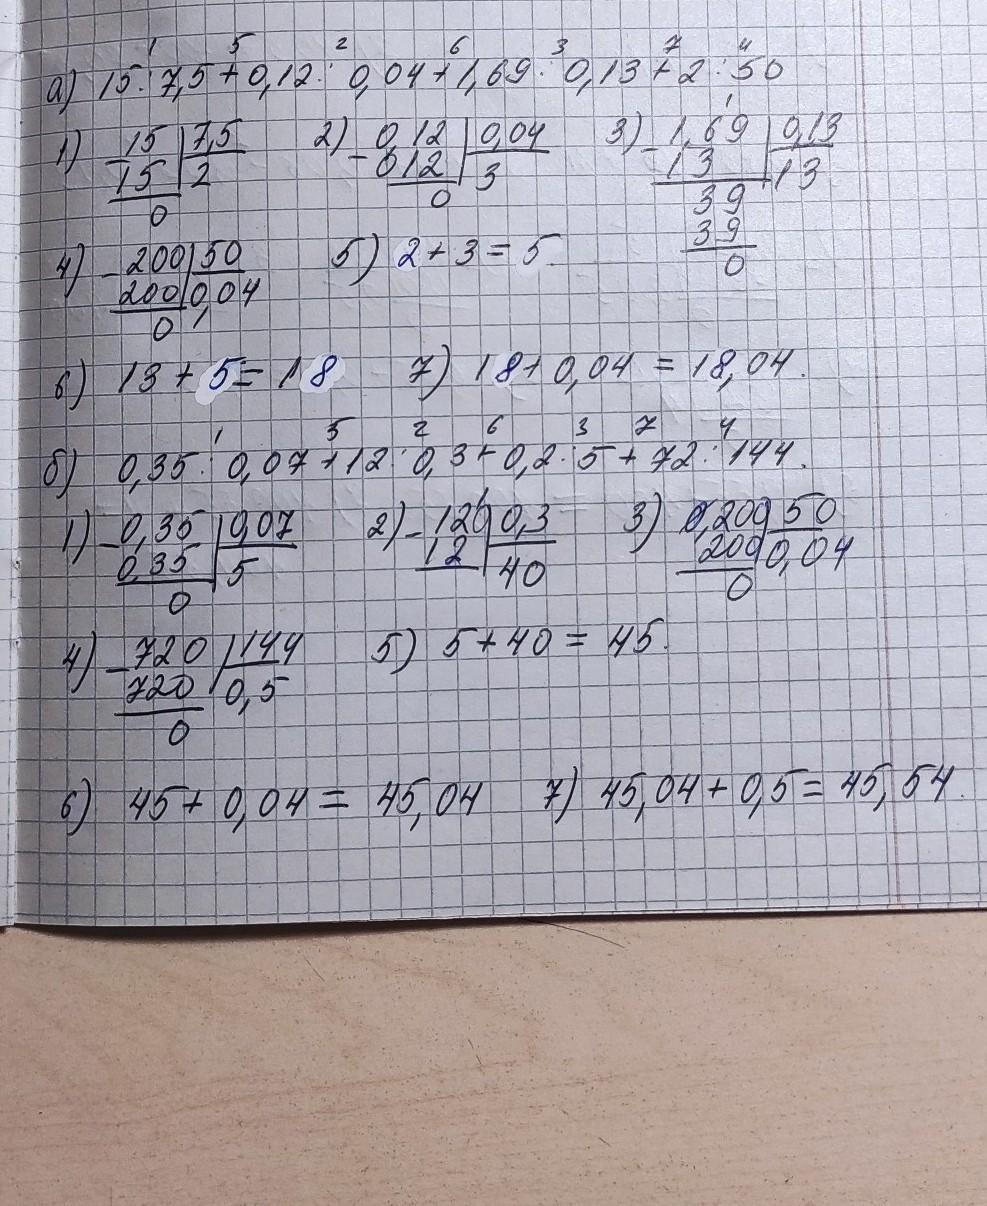 1 5 2 6 3 7 4
а) 15 : 7,5 + 0,12 : 0,04 + 1,69 : 0,13 + 2 : 50
1) 15 | 7,5 2) 0,12 | 0,04 3) 1,69 | 0,13
15 | 2 012 | 3 13 | 13
0 0 39
39
0
4) 200 | 50 5) 2 + 3 = 5
200 | 0,04
0
6) 13 + 5 = 18 7) 18 + 0,04 = 18,04.
1 5 2 6 3 7 4
б) 0,35 : 0,07 + 12 : 0,3 + 0,2 : 5 + 72 : 144.
1) 0,35 | 0,07 2) 120 | 0,3 3) 0,200 | 50
0,35 | 5 12 | 40 200 | 0,04
0 0
4) 720 | 144 5) 5 + 40 = 45.
720 | 0,5
0
6) 45 + 0,04 = 45,04 7) 45,04 + 0,5 = 45,54.